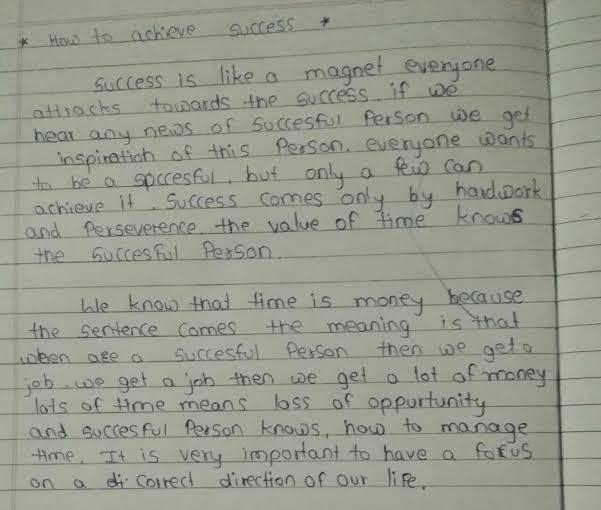 * How to achieve success *
Success is like a magnet everyone
attracks towards the success. if we
hear any news of Succesful Person we get
inspiration of this Person. everyone wants
to be a spccesful, but only a few can
achieve it. Success comes only by hardwork
and Perseverence. the value of time knows
the Succesful Person.
We know that time is money because
the sentence comes the meaning is that
when are a Succesful Person then we get a
job. we get a job then we get a lot of money
lots of time means loss of oppurtunity
and succesful Person knows, how to manage
time. It is very important to have a focus
on a di correct direction of our life.